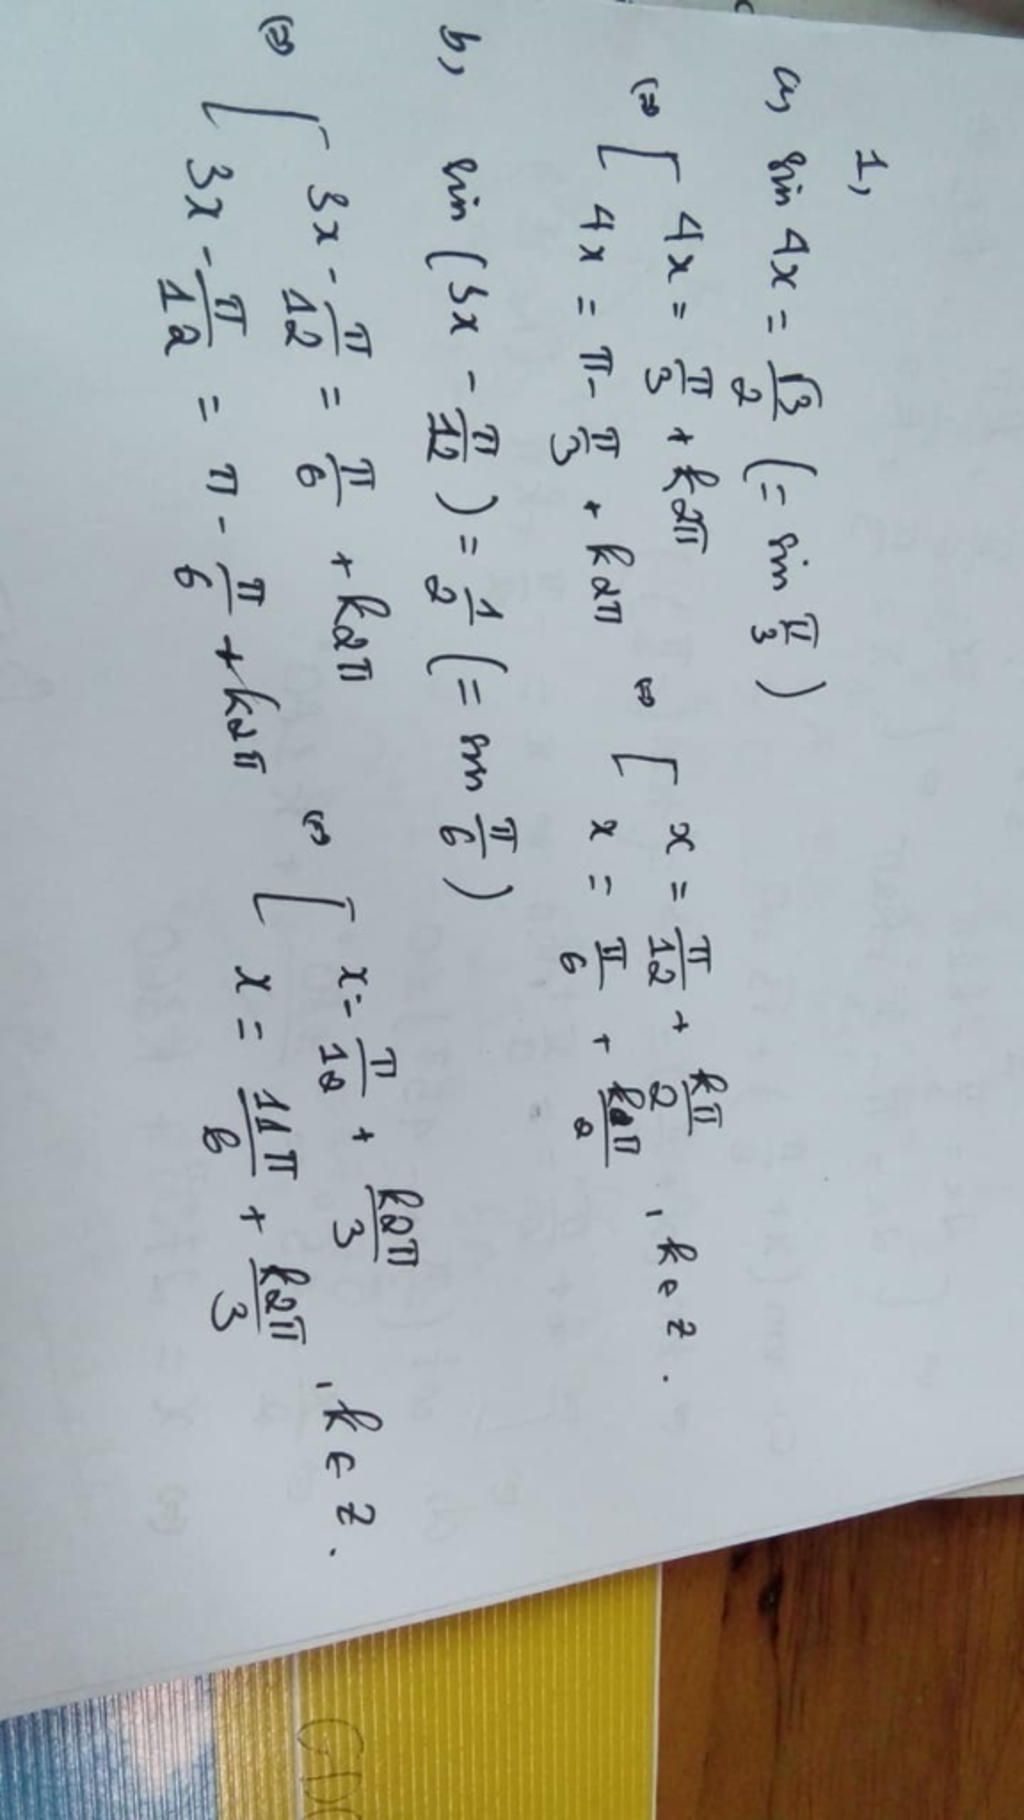 1,
a, sin 4x = √3/2 (= sin π/3)
⇔ [ 4x = π/3 + k2π
4x = π - π/3 + k2π
⇔ [ x = π/12 + kπ/2
x = π/6 + kπ/2 , k ∈ Z.
b, sin (3x - π/12) = 1/2 (= sin π/6)
⇔ [ 3x - π/12 = π/6 + k2π
3x - π/12 = π - π/6 + k2π
⇔ [ x = π/12 + k2π/3
x = 11π/6 + k2π/3 , k ∈ Z.